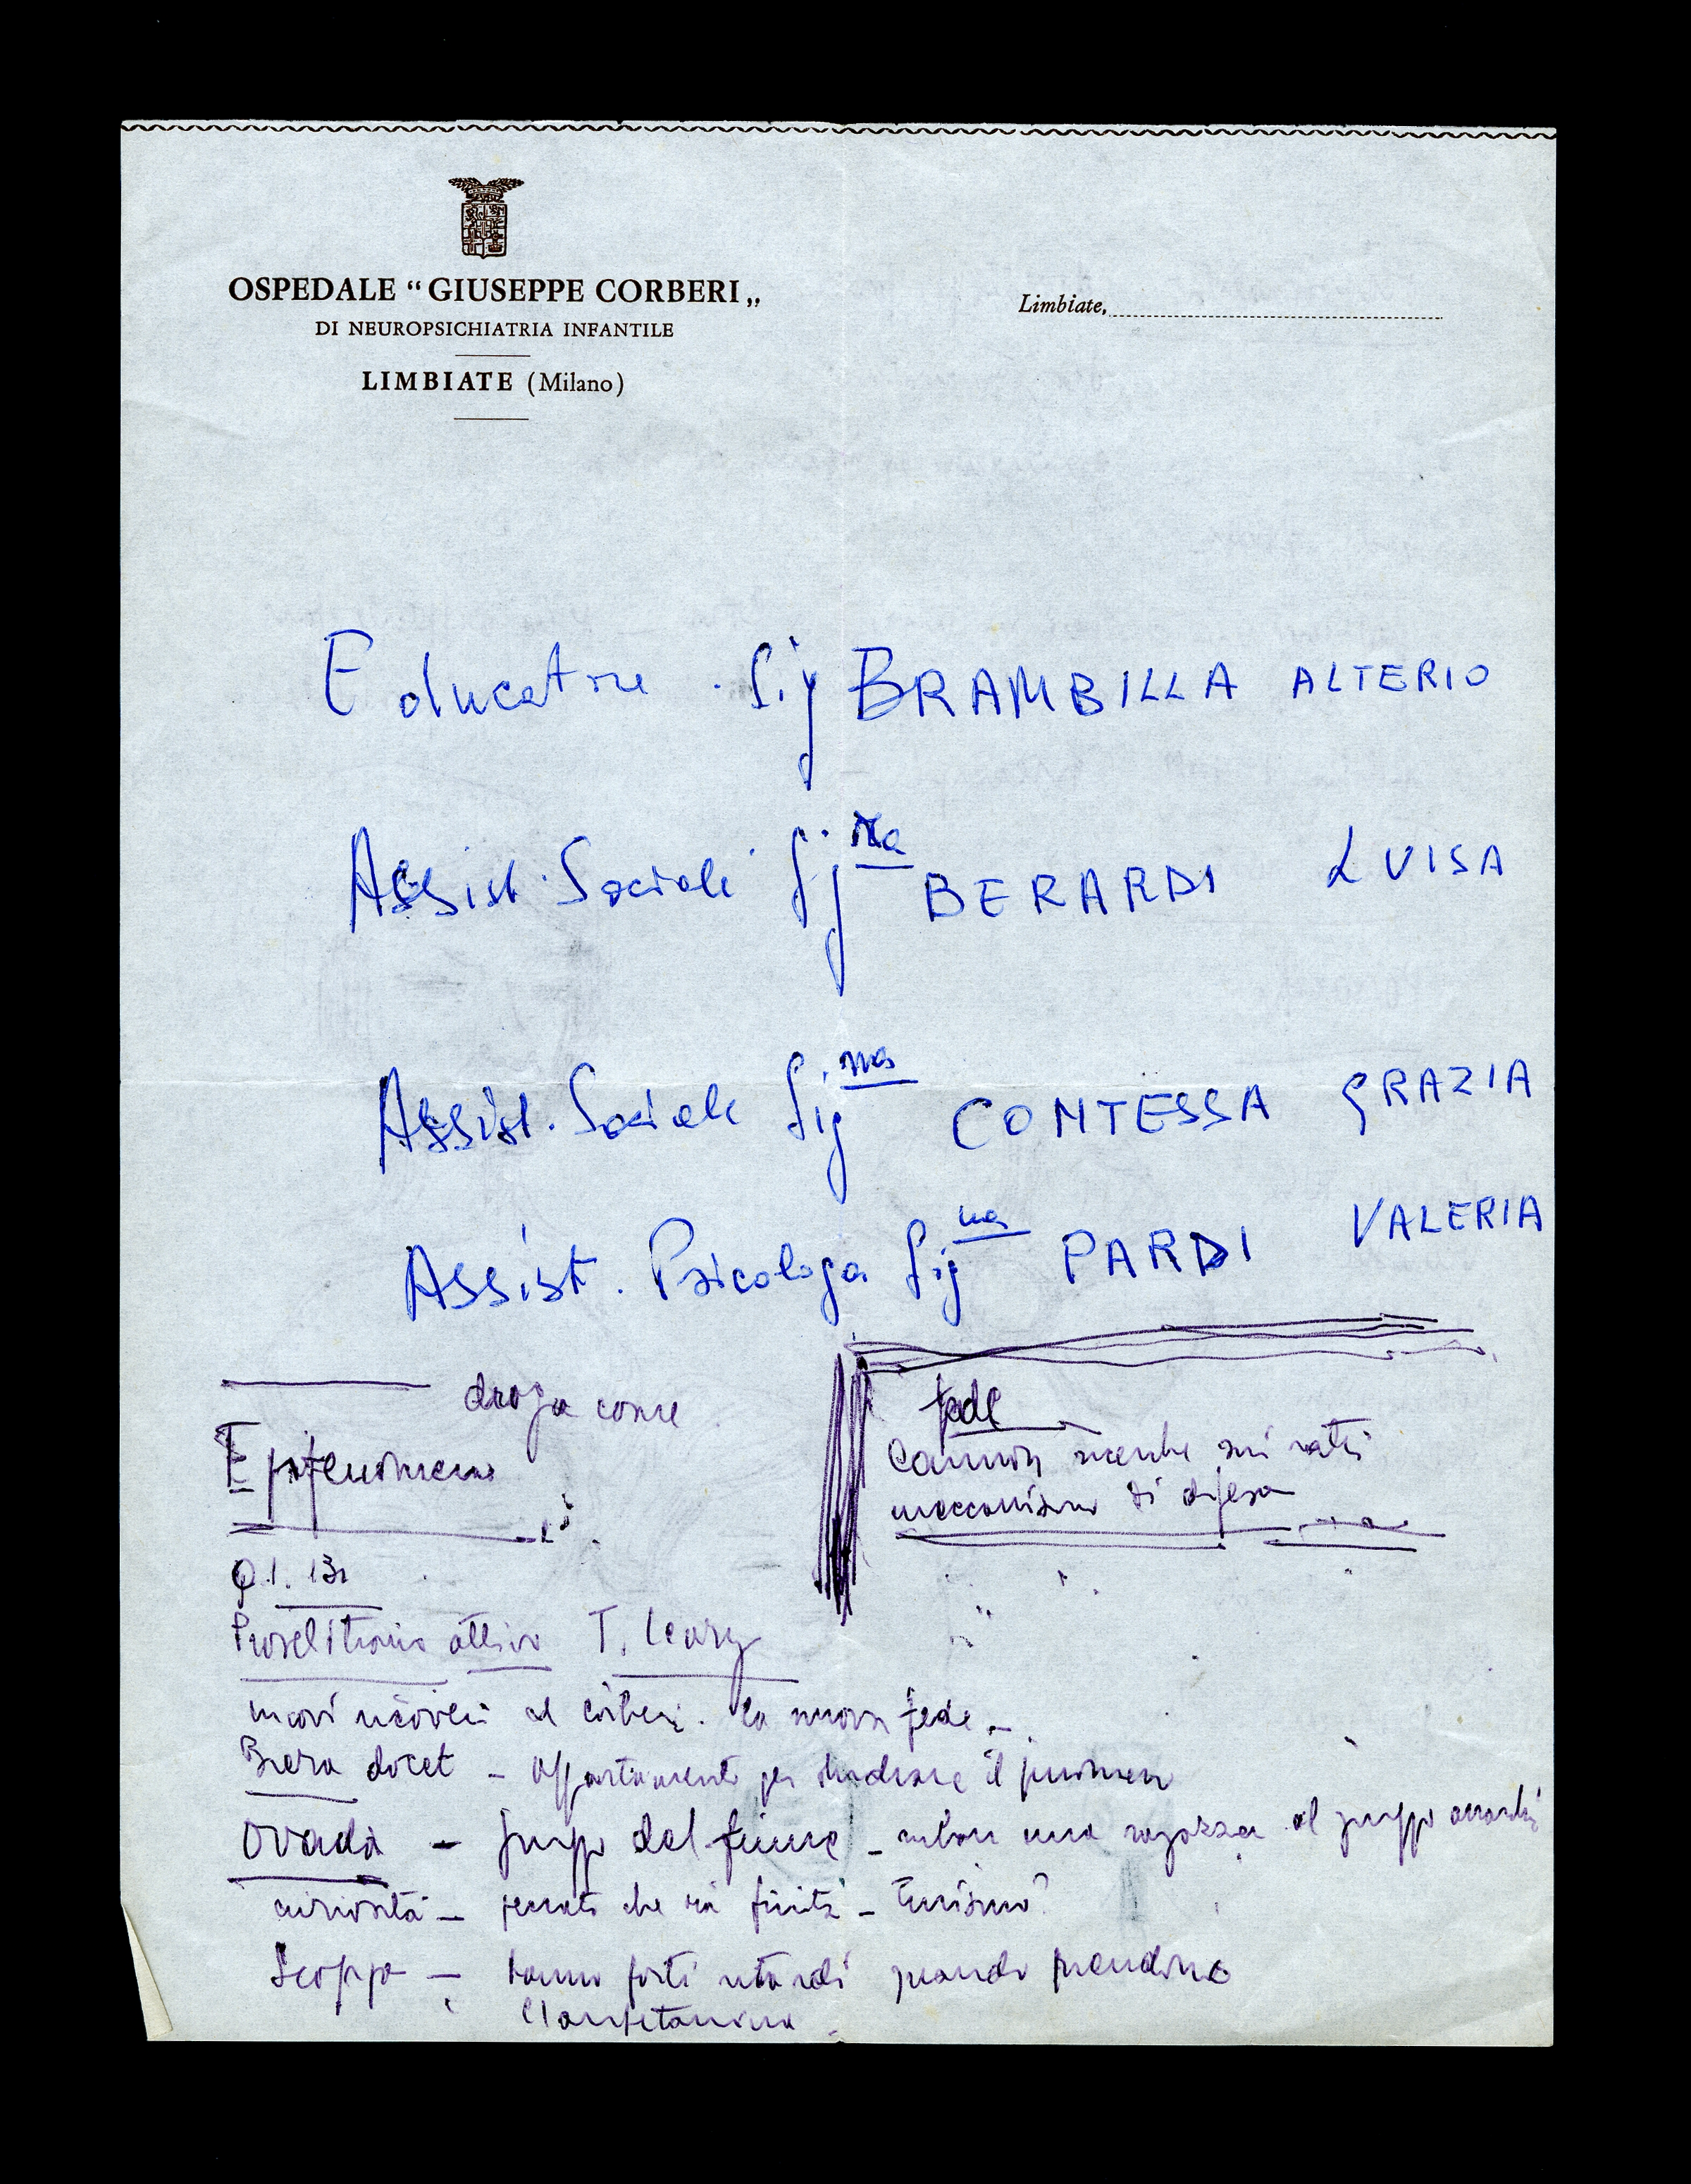 OSPEDALE “GIUSEPPE CORBERI„
DI NEUROPSICHIATRIA INFANTILE
LIMBIATE (Milano)
Limbiate,
Educatore Sig BRAMBILLA ALTERIO
Assist. Sociale Sig.na BERARDI LUISA
Assist. Sociale Sig.na CONTESSA GRAZIA
Assist. Psicologa Sig.na PARDI VALERIA
droga come
Epifenomeno
fede
meccanismo di difesa
Q.I. 132
Proselitismo attivo T. Leary
nuovi ricoveri al Corberi. la nuova fede -
Brera docet - appartamento per studiare il fenomeno
Ovada - gruppo del fiume - una ragazza al gruppo
curiosità - peccato che sia finita - Turismo?
Scoppo - hanno forti quando prendono
l'amfetamina